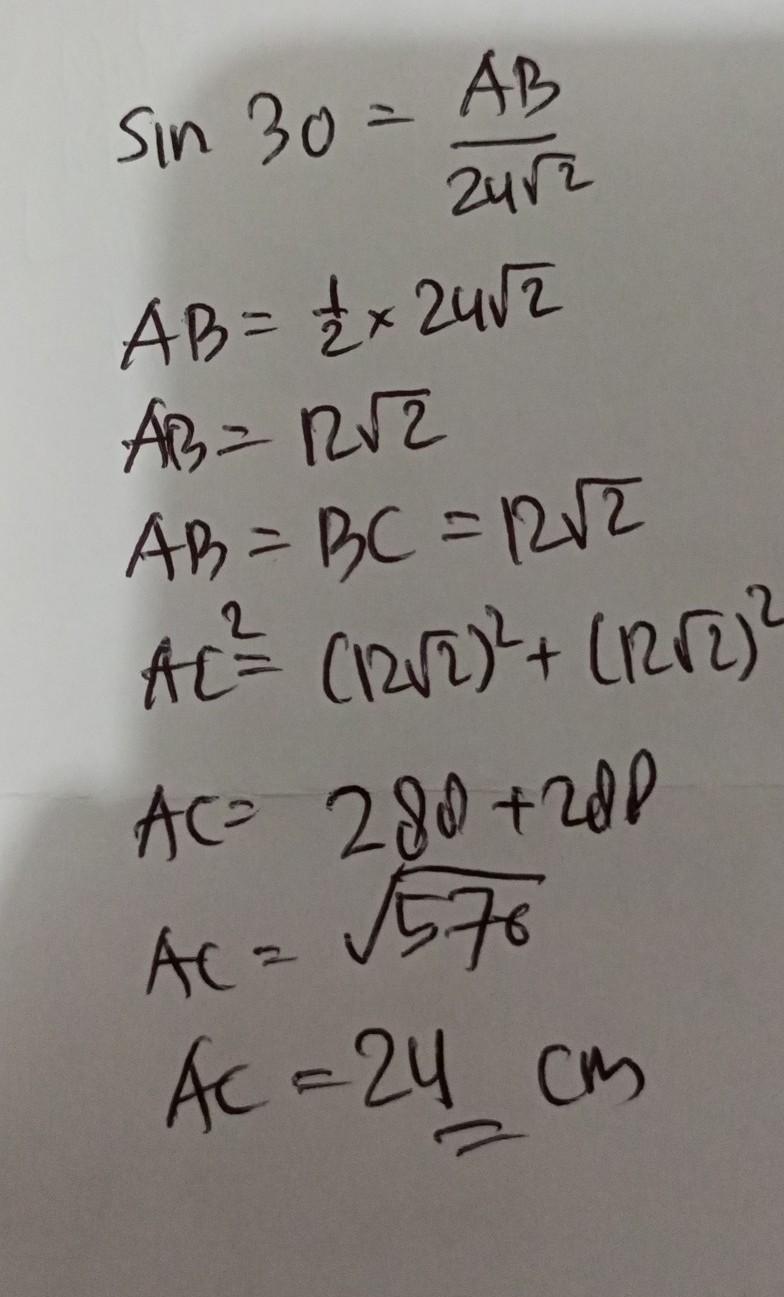 Sin 30 = AB/24√2
AB = 1/2 × 24√2
AB = 12√2
AB = BC = 12√2
AC² = (12√2)² + (12√2)²
AC = 288 + 288
AC = √576
AC = 24 cm